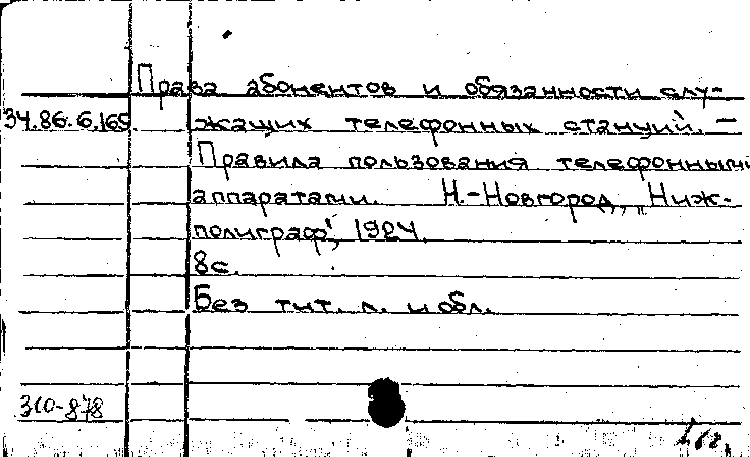 Права абонентов и обязанности слу-
34.86.6.169 жащих телефонных станций. —
Правила пользования телефонными
аппаратами. Н.-Новгород, "Ниж-
полиграф", 1924.
8с.
Без тит. л. и обл.
310-878